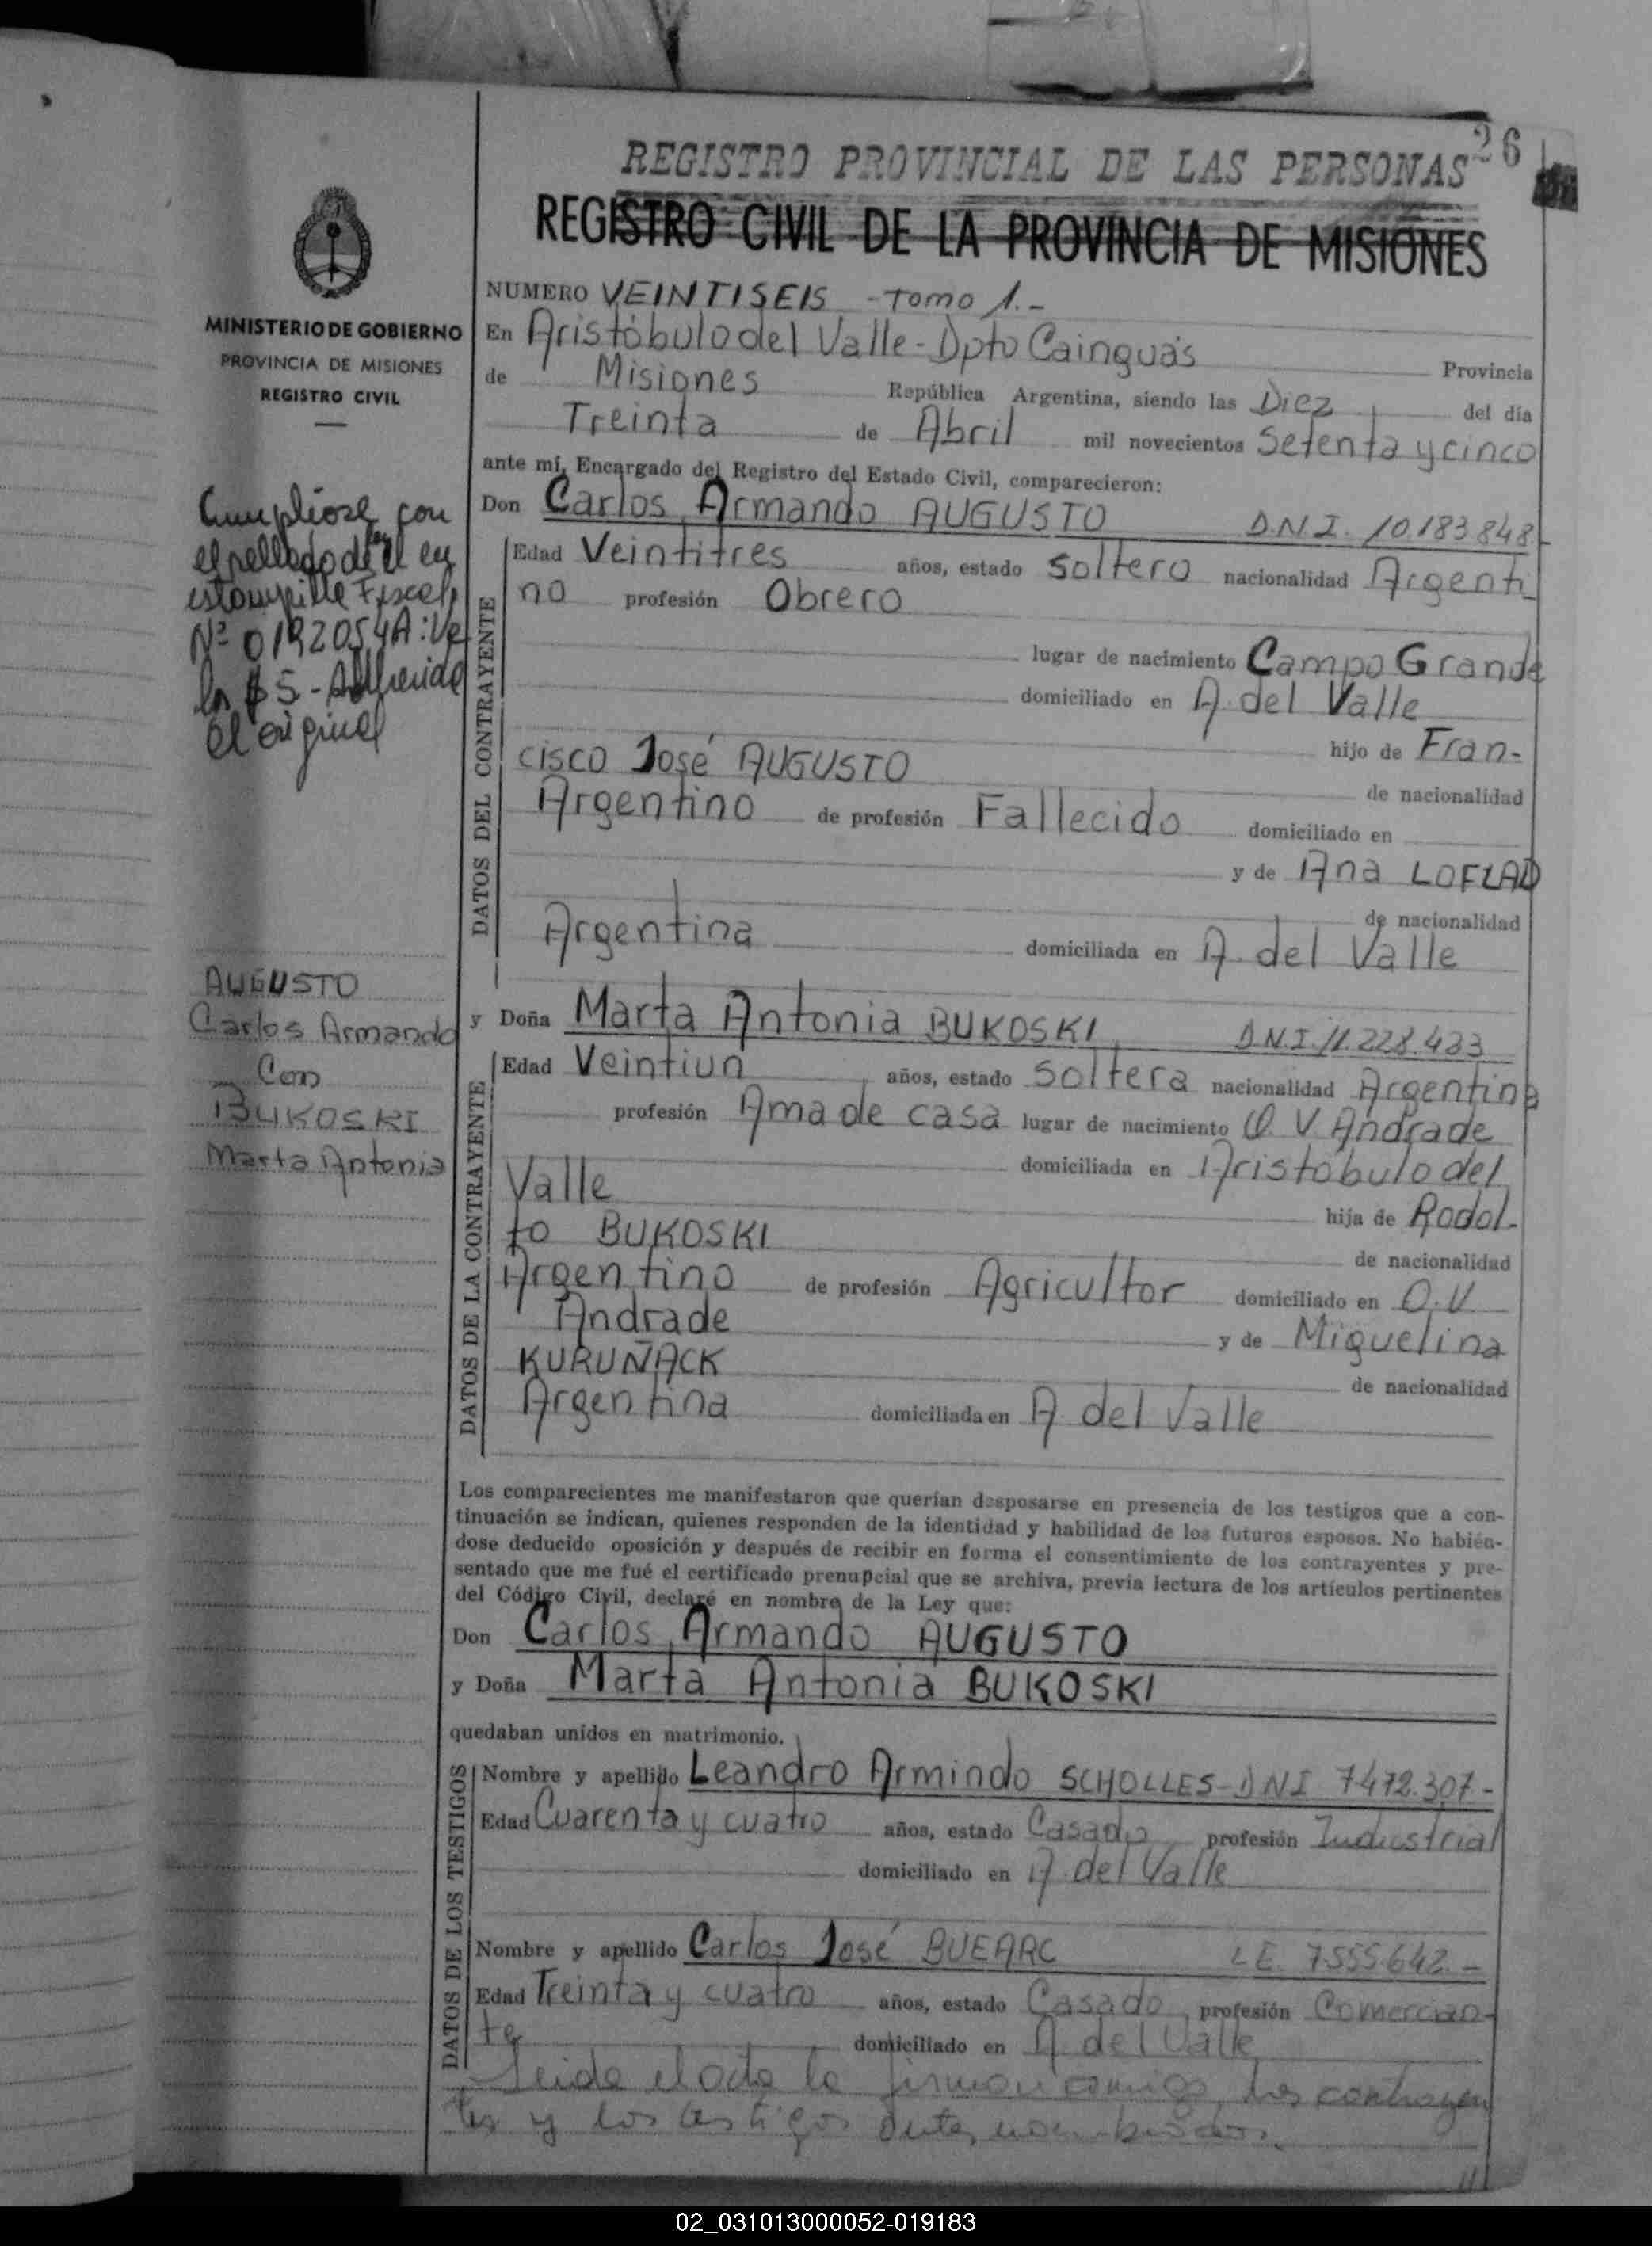 REGISTRO PROVINCIAL DE LAS PERSONAS
26
REGISTRO CIVIL DE LA PROVINCIA DE MISIONES
MINISTERIO DE GOBIERNO
PROVINCIA DE MISIONES
REGISTRO CIVIL
Cumpliose con
el sellado de ley en
estampilla Fiscal
Nº 0192054A: Va
lor $5 - Adherida
al original
AUGUSTO
Carlos Armando
Con
BUKOSKI
Marta Antonia
NUMERO VEINTISEIS - Tomo 1.-
En Aristóbulo del Valle - Dpto Cainguás Provincia
de Misiones República Argentina, siendo las Diez del día
Treinta de Abril mil novecientos Setenta y cinco
ante mí, Encargado del Registro del Estado Civil, comparecieron:
Don Carlos Armando AUGUSTO D.N.I. 10.183.848-
DATOS DEL CONTRAYENTE
Edad Veintitres años, estado soltero nacionalidad Argenti_
no profesión Obrero
lugar de nacimiento Campo Grande
domiciliado en A. del Valle
hijo de Fran-
cisco José AUGUSTO
de nacionalidad
Argentino de profesión Fallecido domiciliado en
y de Ana LOFLAD
de nacionalidad
Argentina domiciliada en A. del Valle
y Doña Marta Antonia BUKOSKI D.N.I. 11.228.433
DATOS DE LA CONTRAYENTE
Edad Veintiun años, estado soltera nacionalidad Argentina
profesión Ama de casa lugar de nacimiento O. V. Andrade
domiciliada en Aristóbulo del
Valle
hija de Rodol-
fo BUKOSKI
de nacionalidad
Argentino de profesión Agricultor domiciliado en O.V
Andrade y de Miguelina
KURUÑACK
de nacionalidad
Argentina domiciliada en A. del Valle
Los comparecientes me manifestaron que querían desposarse en presencia de los testigos que a con-
tinuación se indican, quienes responden de la identidad y habilidad de los futuros esposos. No habién-
dose deducido oposición y después de recibir en forma el consentimiento de los contrayentes y pre-
sentado que me fué el certificado prenupcial que se archiva, previa lectura de los artículos pertinentes
del Código Civil, declaré en nombre de la Ley que:
Don Carlos Armando AUGUSTO
y Doña Marta Antonia BUKOSKI
quedaban unidos en matrimonio.
DATOS DE LOS TESTIGOS
Nombre y apellido Leandro Armindo SCHOLLES - DNI 7472.307.-
Edad Cuarenta y cuatro años, estado Casado profesión Industrial
domiciliado en A. del Valle
Nombre y apellido Carlos José BUEARC LE. 7.555.642.-
Edad Treinta y cuatro años, estado Casado profesión Comercian-
te domiciliado en A. del Valle
Leida el acta la firman conmigo, los contrayen
tes y los testigos antes nombrados.
02_031013000052-019183